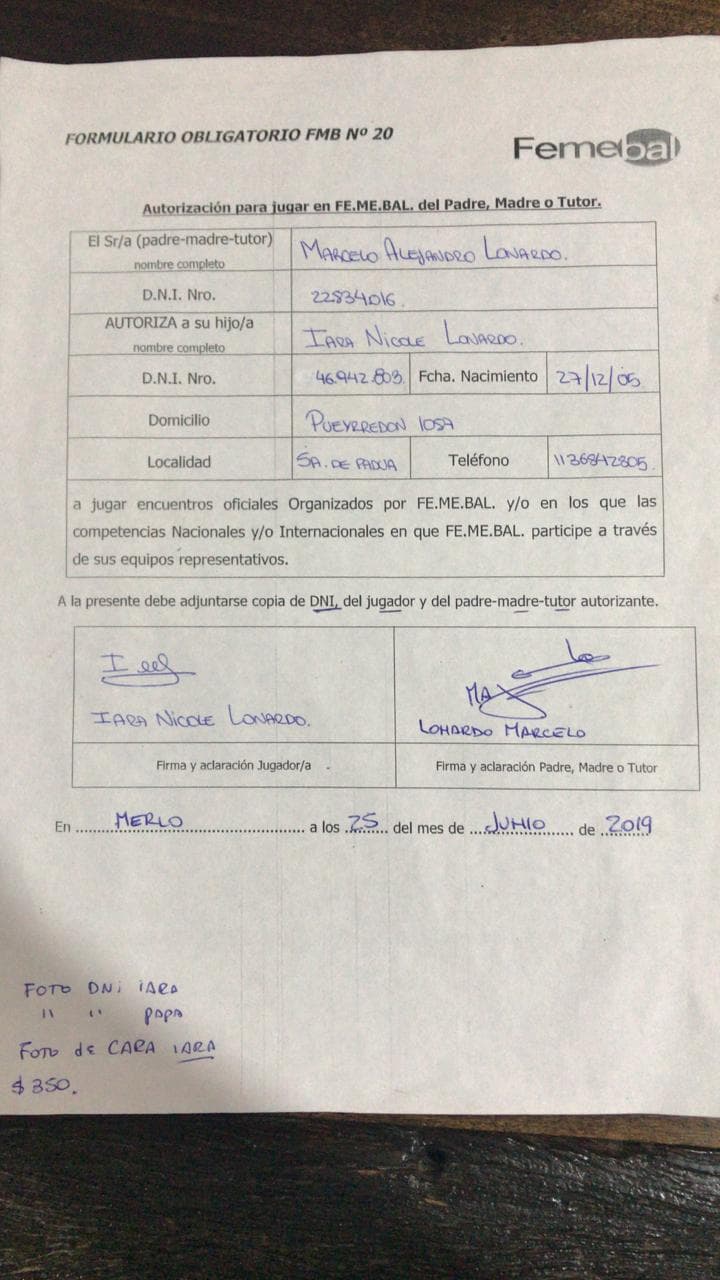 FORMULARIO OBLIGATORIO FMB Nº 20
Femebal
Autorización para jugar en FE.ME.BAL. del Padre, Madre o Tutor.
El Sr/a (padre-madre-tutor)
nombre completo
MARCELO ALEJANDRO LONARDO.
D.N.I. Nro.
22834016.
AUTORIZA a su hijo/a
nombre completo
IARA NICOLE LONARDO.
D.N.I. Nro.
46.942.803.
Fcha. Nacimiento
27/12/05
Domicilio
PUEYRREDON 1059
Localidad
SA. DE PADUA
Teléfono
1136842805.
a jugar encuentros oficiales Organizados por FE.ME.BAL. y/o en los que las
competencias Nacionales y/o Internacionales en que FE.ME.BAL. participe a través
de sus equipos representativos.
A la presente debe adjuntarse copia de DNI, del jugador y del padre-madre-tutor autorizante.
IARA NICOLE LONARDO.
LONARDO MARCELO
Firma y aclaración Jugador/a
Firma y aclaración Padre, Madre o Tutor
En MERLO a los 25 del mes de JUNIO de 2019
FOTO DNI IARA
" " PAPA
FOTO de CARA IARA
$350.